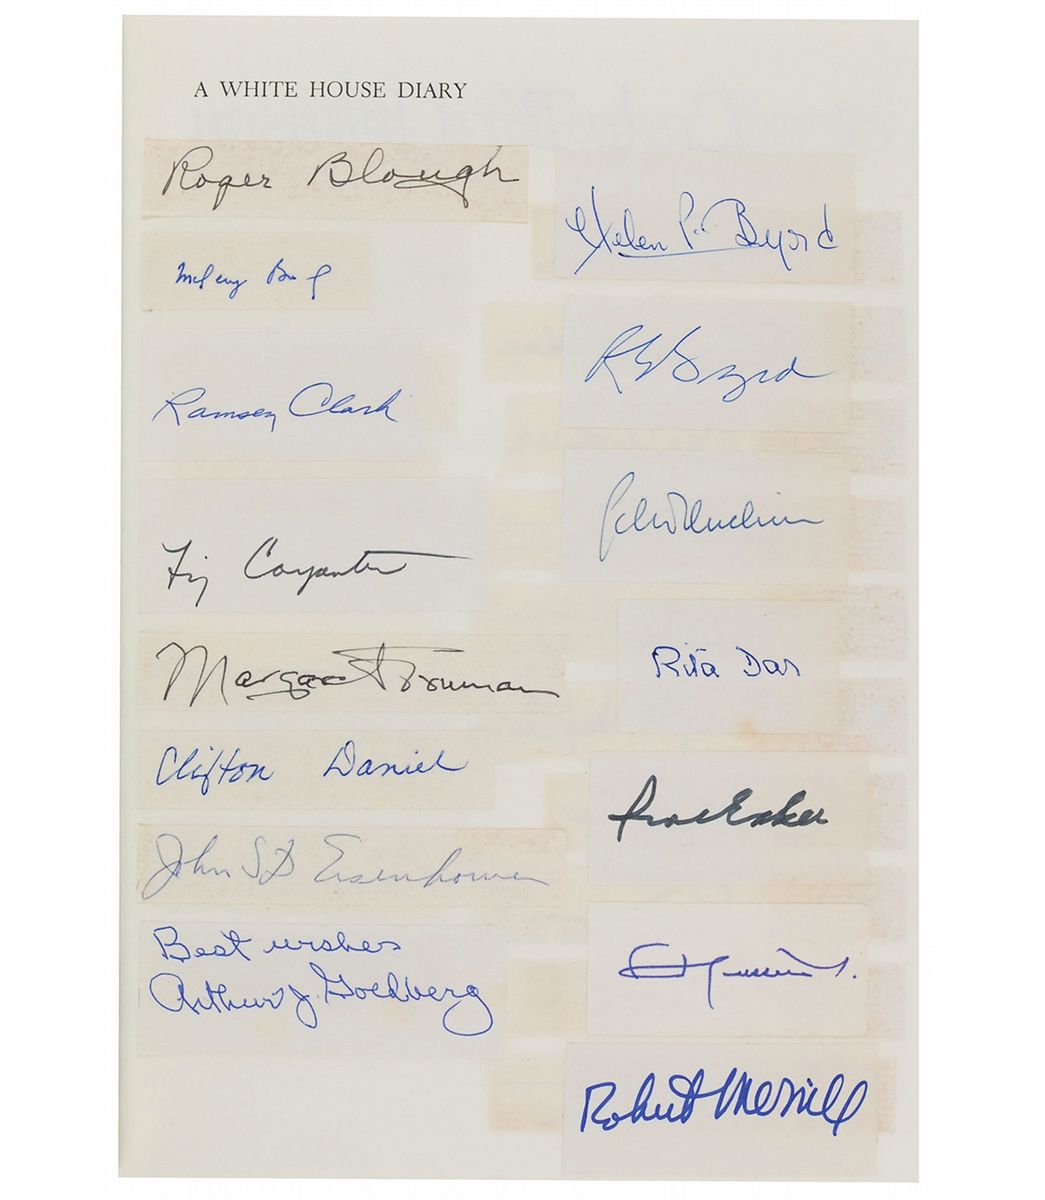 A WHITE HOUSE DIARY
Roger Blough
Ramsey Clark
Liz Carpenter
Margaret Truman
Clifton Daniel
John SD Eisenhower
Best wishes
Arthur J. Goldberg
Helen P. Byrd
R E Byrd
Rita Dar
Robert Merrill